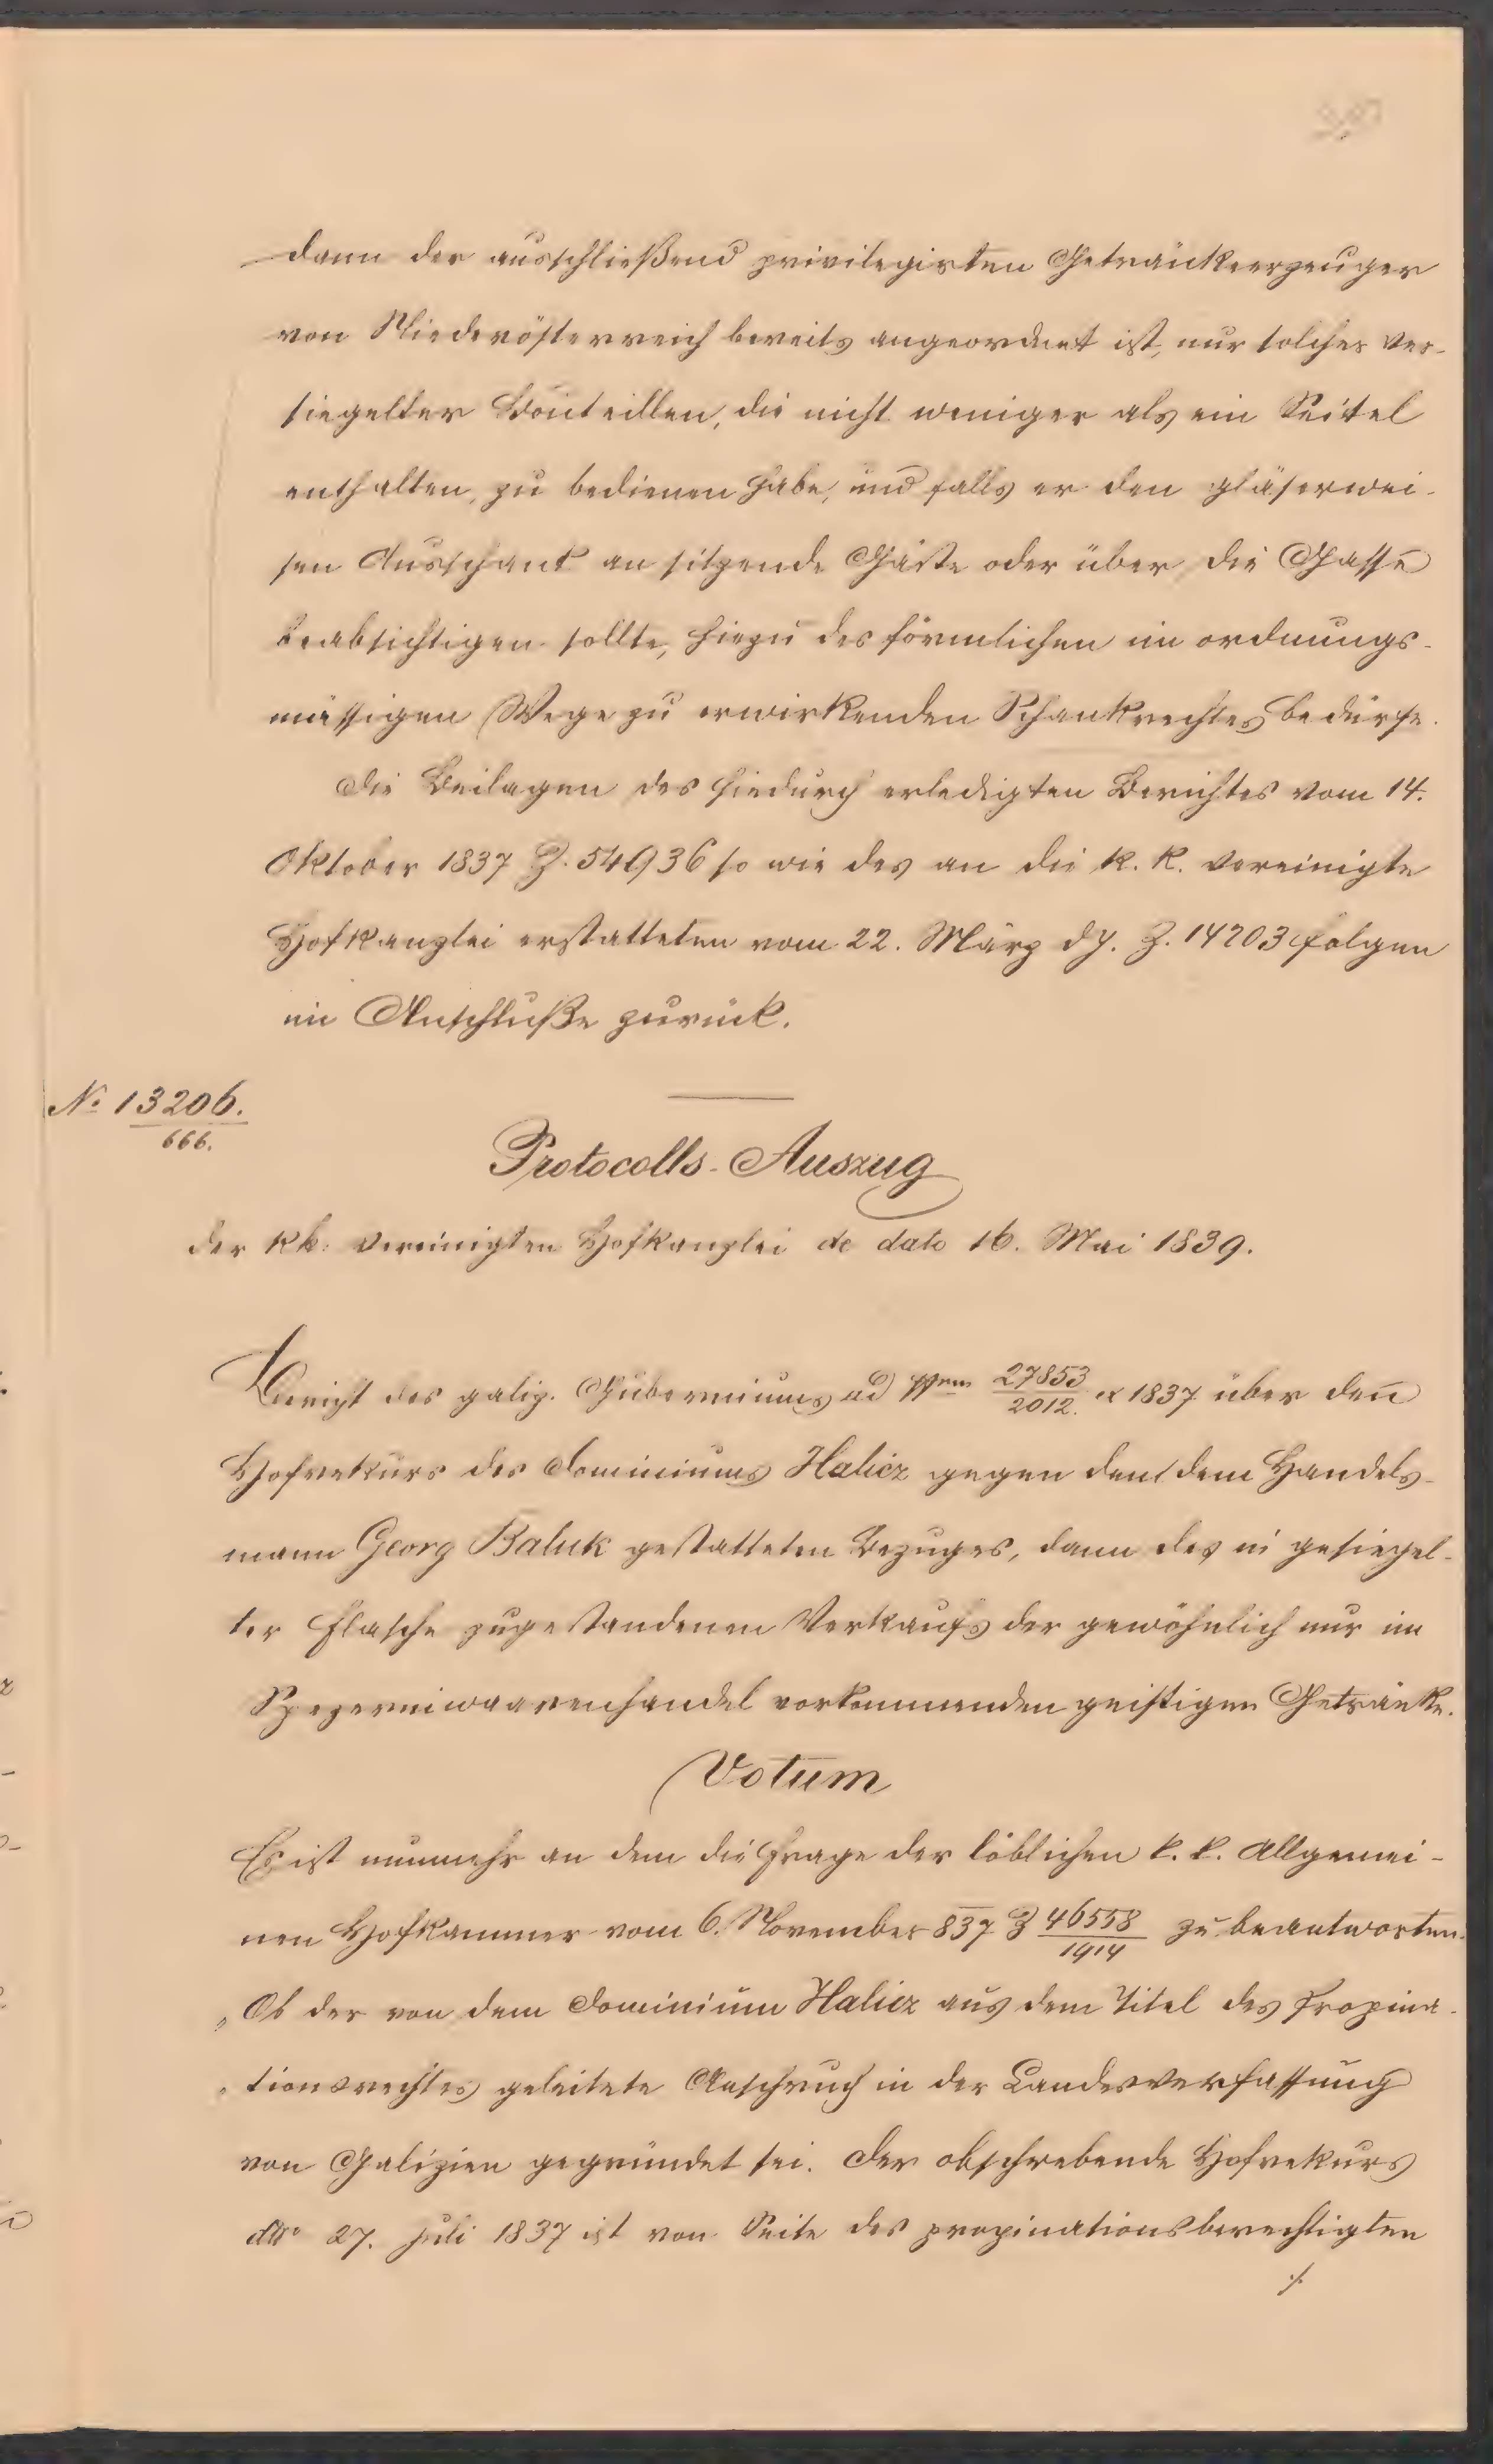 dann der ausschließend privilegirten Getränkeerzeuger
von Niederösterreich bereits angeordnet ist, nur solcher ver-
siegelter Bouteillen, die nicht weniger als ein Seitel
enthalten, zu bedienen habe, und falls er den gläserwei-
sen Ausschank an sitzende Gäste oder über die Gasse
beabsichtigen sollte, hiezu des förmlichen im ordnungs-
mässigen Wege zu erwirkenden Schankrechtes bedürfe.
Die Beilagen des hiedurch erledigten Berichtes vom 14.
Oktober 1837 Z. 54936 so wie des an die k. k. vereinigte
Hofkanzlei erstatteten vom 22. März dJ. Z. 14203 folgen
im Anschluße zurück.
No 13206.
666.
Protocolls-Auszug
der kk. vereinigten Hofkanzlei de dato 16. Mai 1839.
Bericht des galiz. Guberniums ad 27853
2012. ex 1837 über den
Hofrekurs des Dominiums Halicz gegen den dem Handels-
mann Georg Baluk gestatteten Bezuges, dann des in gesiegel-
ter Flasche zugestandenen Verkaufs der gewöhnlich nur im
Spezereiwaarenhandel vorkommenden geistigen Getränke.
Votum
Es ist nunmehr an dem die Frage der löblichen k. k. Allgemei-
nen Hofkammer vom 6. November 837 Z 46558
1914 zu beantworten.
„Ob der von dem Dominium Halicz aus dem Titel des Propina-
„tionsrechtes geleitete Anspruch in der Landesverfassung
von Galizien gegründet sei. Der obschwebende Hofrekurs
ddo 27. Juli 1837 ist von Seite des propinationsberechtigten
./.